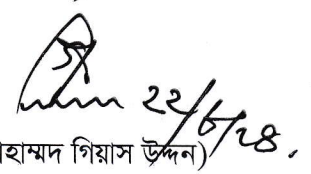 ২২/৮/২৪.
হাম্মদ গিয়াস উদ্দন)